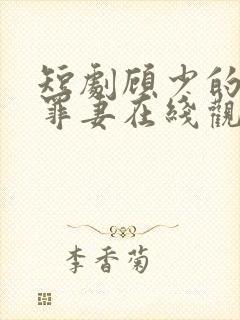 短劇顾少的
罪妻在綫觀
李香菊